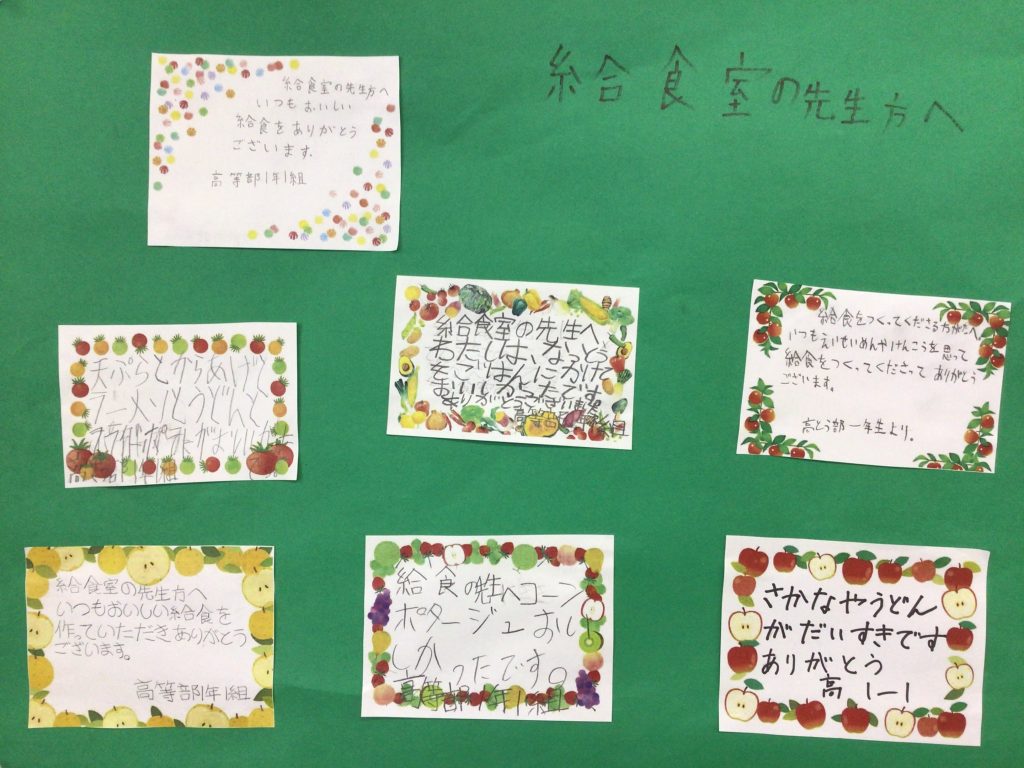 給食室の先生方へ
給食室の先生方へ
いつもおいしい
給食をありがとう
ございます。
高等部1年1組
天ぷらとからあげと
ラーメンとうどんと
フライドポテトがおいしかった
給食室の先生へ
わたしは、なっとう
をごはんにかけ
おいしかったです。
ありがとうございます。
高等部
給食をつくってくださる方がたへ
いつもえいせいめんやけんこうを思って
給食をつくってくださって ありがとう
ございます。
高とう部一年生より。
給食室の先生方へ
いつもおいしい給食を
作っていただきありがとう
ございます。
高等部1年1組
給食の先生へコーン
ポタージュおい
しかったです。
高等部1年1組
さかなやうどん
がだいすきです
ありがとう
高1-1